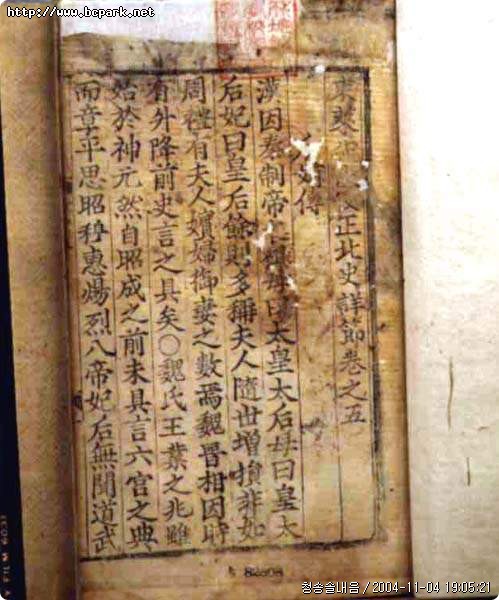 http://www.bcpark.net
東萊 正北史詳節卷之五
后妃傳
漢因秦制帝 母曰太皇太后母曰皇太
后妃曰皇后餘則多稱夫人隨世增損非如
周禮有夫人嬪婦御妻之數焉魏晉相因時
有外降前史言之具矣〇魏氏王業之兆雖
始於神元然自昭成之前未具言六宮之典
而章平思昭穆惠煬烈八帝妃后無聞道武
청송솔내음 / 2004-11-04 19:05:21